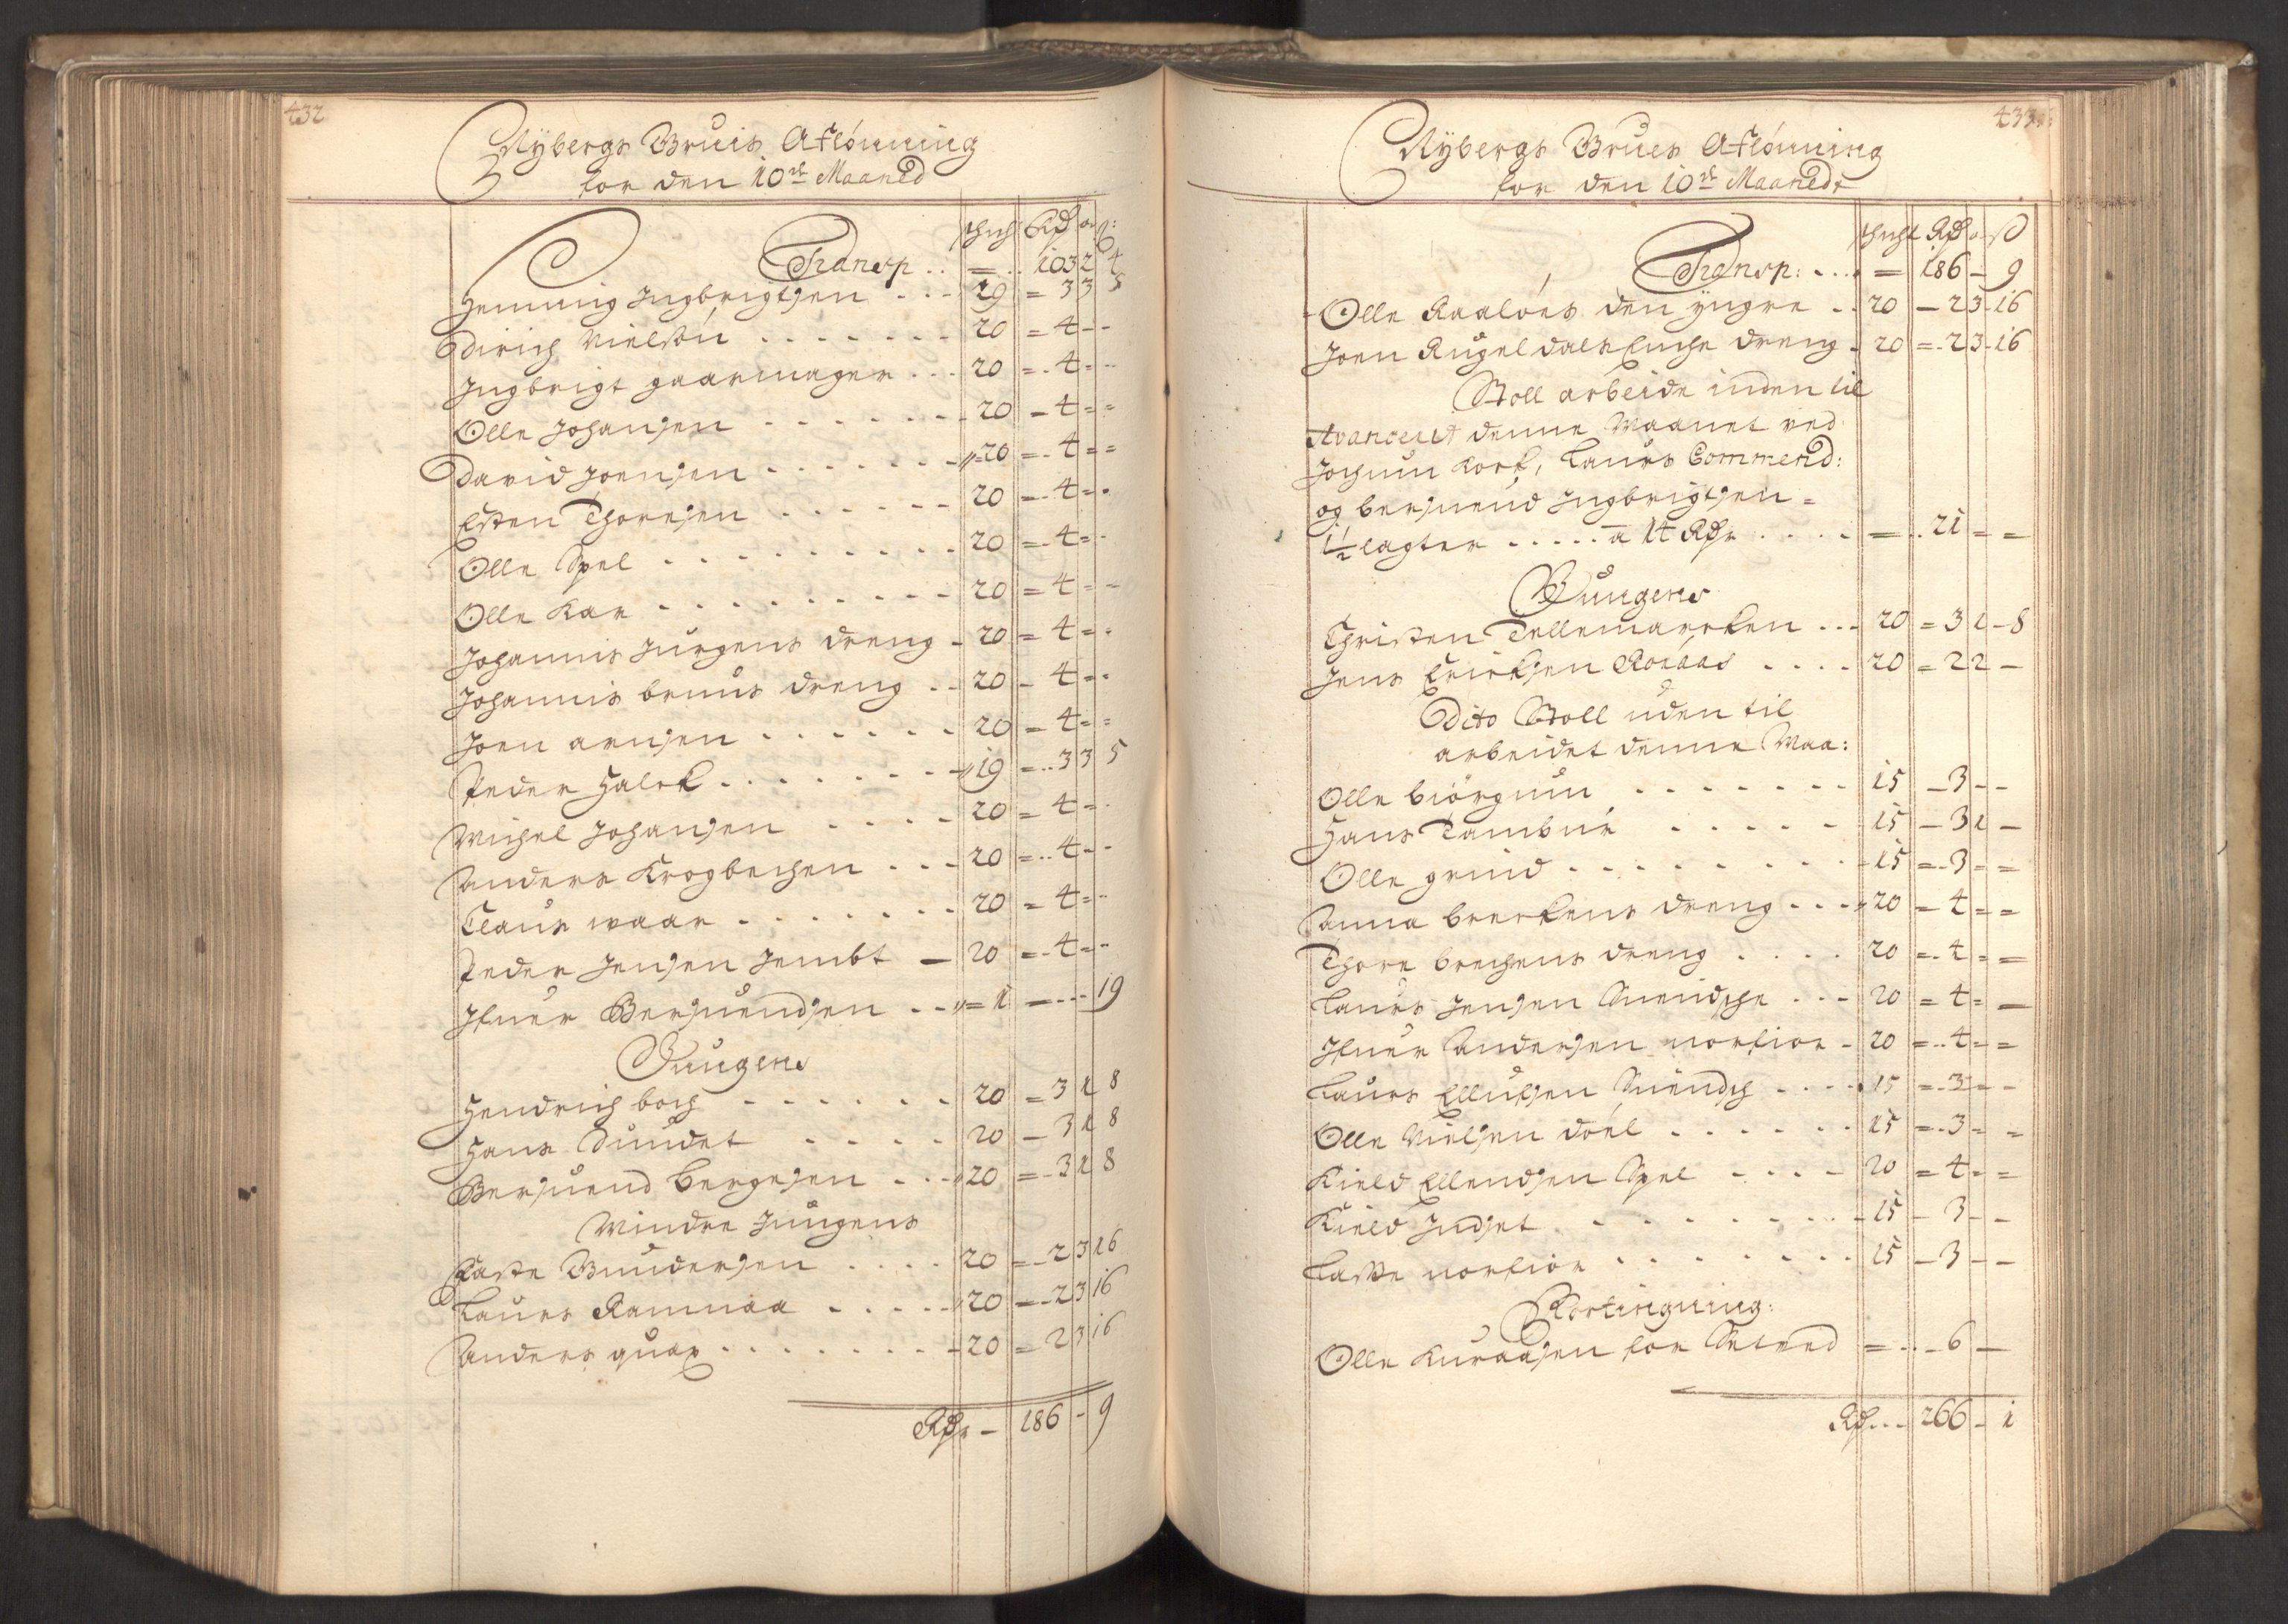 432
Nybergs Bruis Aflönning
for den 10de Maaned
schicht Rdr o ß:
Transp . . = . . 103 2 4
Hemmig Ingbrigtsen . . . 19 = 3 3 5
Dirich Nielsen . . . . . . . 20 = 4 - -
Ingbrigt gaarmager . . . 20 = . 4 - -
Olle Johansen . . . . . . . 20 - 4 = =
David Joensen . . . . . . . 20 = . 4 = =
Esten Thoresen . . . . . . 20 = . 4 = .
Olle Spel . . . . . . . . . 20 = . 4 = .
Olle Kar . . . . . . . . . 20 = 4 - -
Johannis Jürgens dreng - 20 = 4 = .
Johannis bruus dreng . . 20 - 4 = .
Joen arnsen . . . . . . 20 = 4 = =
Peder Halck . . . . . . . 19 = . . 3 3 5
Michel Johansen . . . . 20 = 4 = .
Anders Krogbechen . . . 20 = . . 4 - -
Claus waar . . . . . . . 20 = 4 = -
Peder Jensen Jembt - 20 = . 4 = -
Ifuer Bersuendsen . . = 1 = . . . 19
Jungens
Hendrich boch . . . . . . 20 = 3 1 8
Hans Sundet . . . . 20 - 3 1 8
Bersuend Bergesen . . . 20 = . 3 1 8
Mindre Jungens
Laste Gundersen . . . . 20 = . 2 3 16
Laurs Ramnaa . . . . . 20 = . 2 3 16
Anders quax . . . . . . . 20 = 2 3 16
Rdr - 186 - 9
433
Nybergs Brues Aflönning
for den 10de Maanedt
schicht Rdr o ß
Transp: . . . . = 186 - 9
Olle Raaloes den yngre . . 20 - 2 3 - 16
Joen Rugeldals Enche dreng . 20 = . 2 3 - 16
Stoll arbeide inden til
Avanceret denne Maanet ved
Jochum Kork, Laurs Commend:
og bersuend Ingbrigtsen =
1½ lagter . . . . . a 14 Rdr . . . . = . . 21 = =
Jungens
Christen Tellemarcken . . . 20 = 3 1 - 8
Jens Ericksen Roraas . . . . 20 = 2 2 -
Dito Stoll uden til
arbeidet denne Maa:
Olle biörgum . . . . . . . 15 - 3 - -
Hans Tambur . . . . . 15 - 3 1 -
Olle grind . . . . . . . . 15 = . 3 = =
Anna breckens dreng . . . 20 = 4 = =
Thore brechens dreng . . . . 20 = . 4 = =
Laurs Jensen Suendsche . . . 20 = 4 = -
Ifuer Andersen norfior - 20 = . . 4 = =
Laurs Ellufsen Suendsch . . . . 15 = . 3 = -
Olle Nielsen doel . . . . . . 15 = . 3 = =
Kield Ellendsen Spel . . . . 20 = 4 = =
Kield Indset . . . . . . . . 15 - 3 - -
Lasse norfior . . . . . . . . 15 - 3 - -
Fortingning:
Olle Knraasen for Seleved = . . . 6 -
Rdr . . . 266 - 1